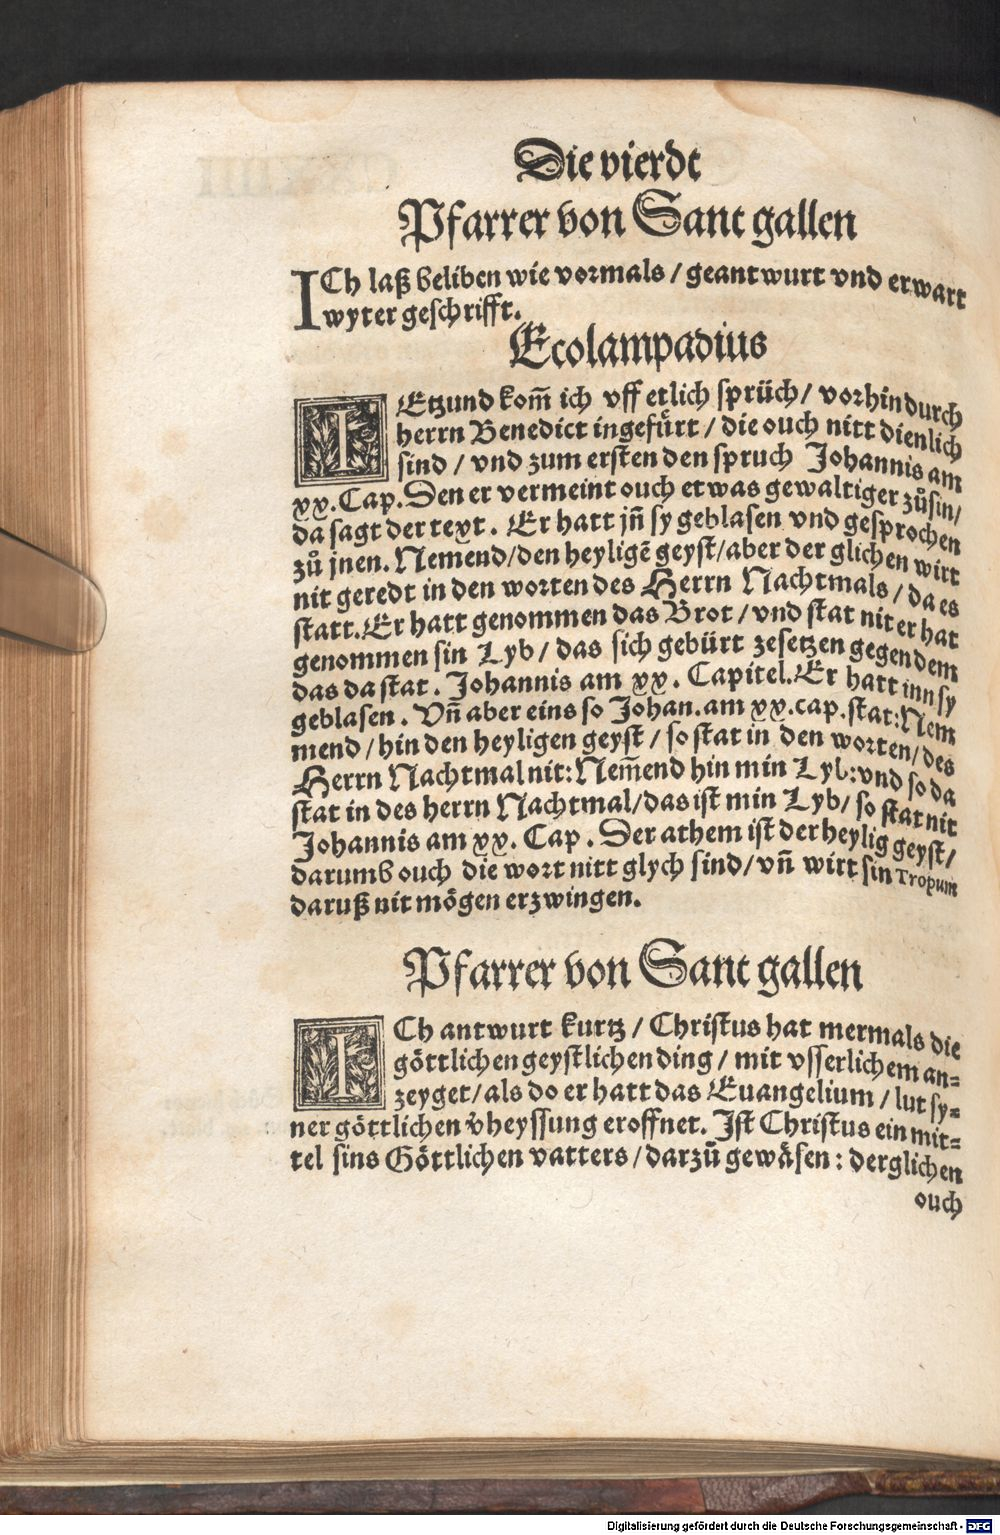 Die vierdt
Pfarrer von Sant gallen
ICh laß beliben wie vormals / geantwurt vnd erwart
wyter geschrifft.
Ecolampadius
IEtzund kom̃ ich vff etlich sprüch / vorhin durch
herrn Benedict ingefürt / die ouch nitt dienlich
sind / vnd zum ersten den spruch Johannis am
xx. Cap. Den er vermeint ouch etwas gewaltiger zů sin /
da sagt der text. Er hatt jñ sy geblasen vnd gesprochen
zů jnen. Nemend / den heyligẽ geyst / aber der glichen wirt
nit geredt in den worten des Herrn Nachtmals / da es
statt. Er hatt genommen das Brot / vnd stat nit er hat
genommen sin Lyb / das sich gebürt zesetzen gegen dem
das da stat. Johannis am xx. Capitel. Er hatt inn sy
geblasen. Vñ aber eins so Johan. am xx. cap. stat: Nem
mend / hin den heyligen geyst / so stat in den worten / des
Herrn Nachtmal nit: Nem̃end hin min Lyb: vnd so da
stat in des herrn Nachtmal / das ist min Lyb / so stat nit
Johannis am xx. Cap. Der athem ist der heylig geyst /
darumb ouch die wort nitt glych sind / vñ wirt sin Tropum
daruß nit mögen erzwingen.
Pfarrer von Sant gallen
ICh antwurt kurtz / Christus hat mermals die
göttlichen geystlichen ding / mit vsserlichem an=
zeyget / als do er hatt das Euangelium / lut sy=
ner göttlichen v̈heyssung eroffnet. Ist Christus ein mit=
tel sins Göttlichen vatters / darzů gewäsen: derglichen
ouch
Digitalisierung gefördert durch die Deutsche Forschungsgemeinschaft - DFG